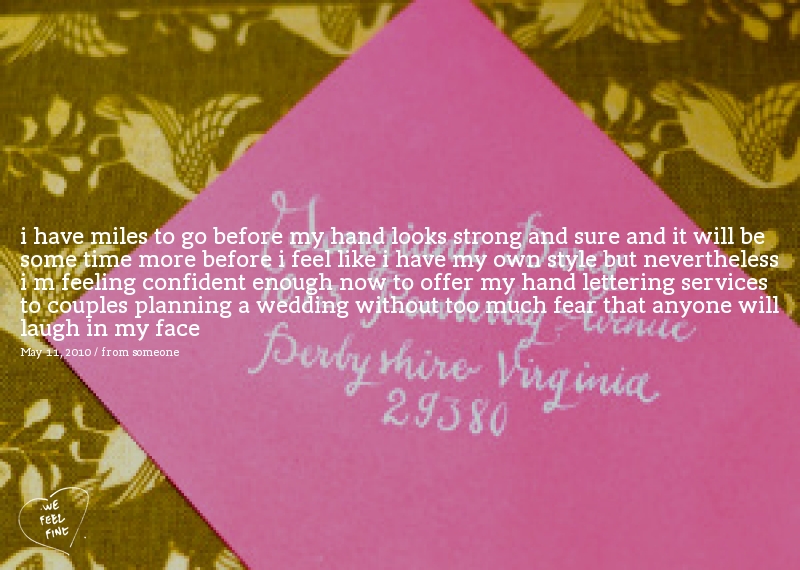 i have miles to go before my hand looks strong and sure and it will be
some time more before i feel like i have my own style but nevertheless
i m feeling confident enough now to offer my hand lettering services
to couples planning a wedding without too much fear that anyone will
laugh in my face
May 11, 2010 / from someone
Georgiana Darcy
Pemberley Avenue
Derbyshire Virginia
29380
WE
FEEL
FINE